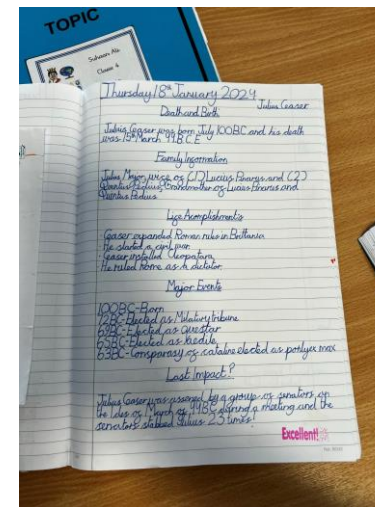 TOPIC
Suhaan Ali
Classe 4
Thursday 18th January 2024
Julius Ceaser
Death and Birth
Julius Ceaser was born July 100BC and his death
was 15th March 44B.C.E
Family Information
Julia Major wife of (1) Lucius Pinarus and (2)
Quintus Pedius, Grandmother of Lucius Pinarus and
Quintus Pedius
Life Acomplishments
Ceaser expanded Roman rule in Brittania
He started a civil war
Ceaser installed Cleopatara
He ruled Rome as a dictator
Major Events
100BC-Born
72BC-Elected as Milatary tribune
69BC-Elected as Questar
65BC-Elected as Aedile
63BC-Consparasy of cataline elected as max
Last Impact?
Julius Ceaser was by a group of senators on
the Ides of March of 44BC during a meeting and the
senertors stabbed Julius 23 times!
Excellent!